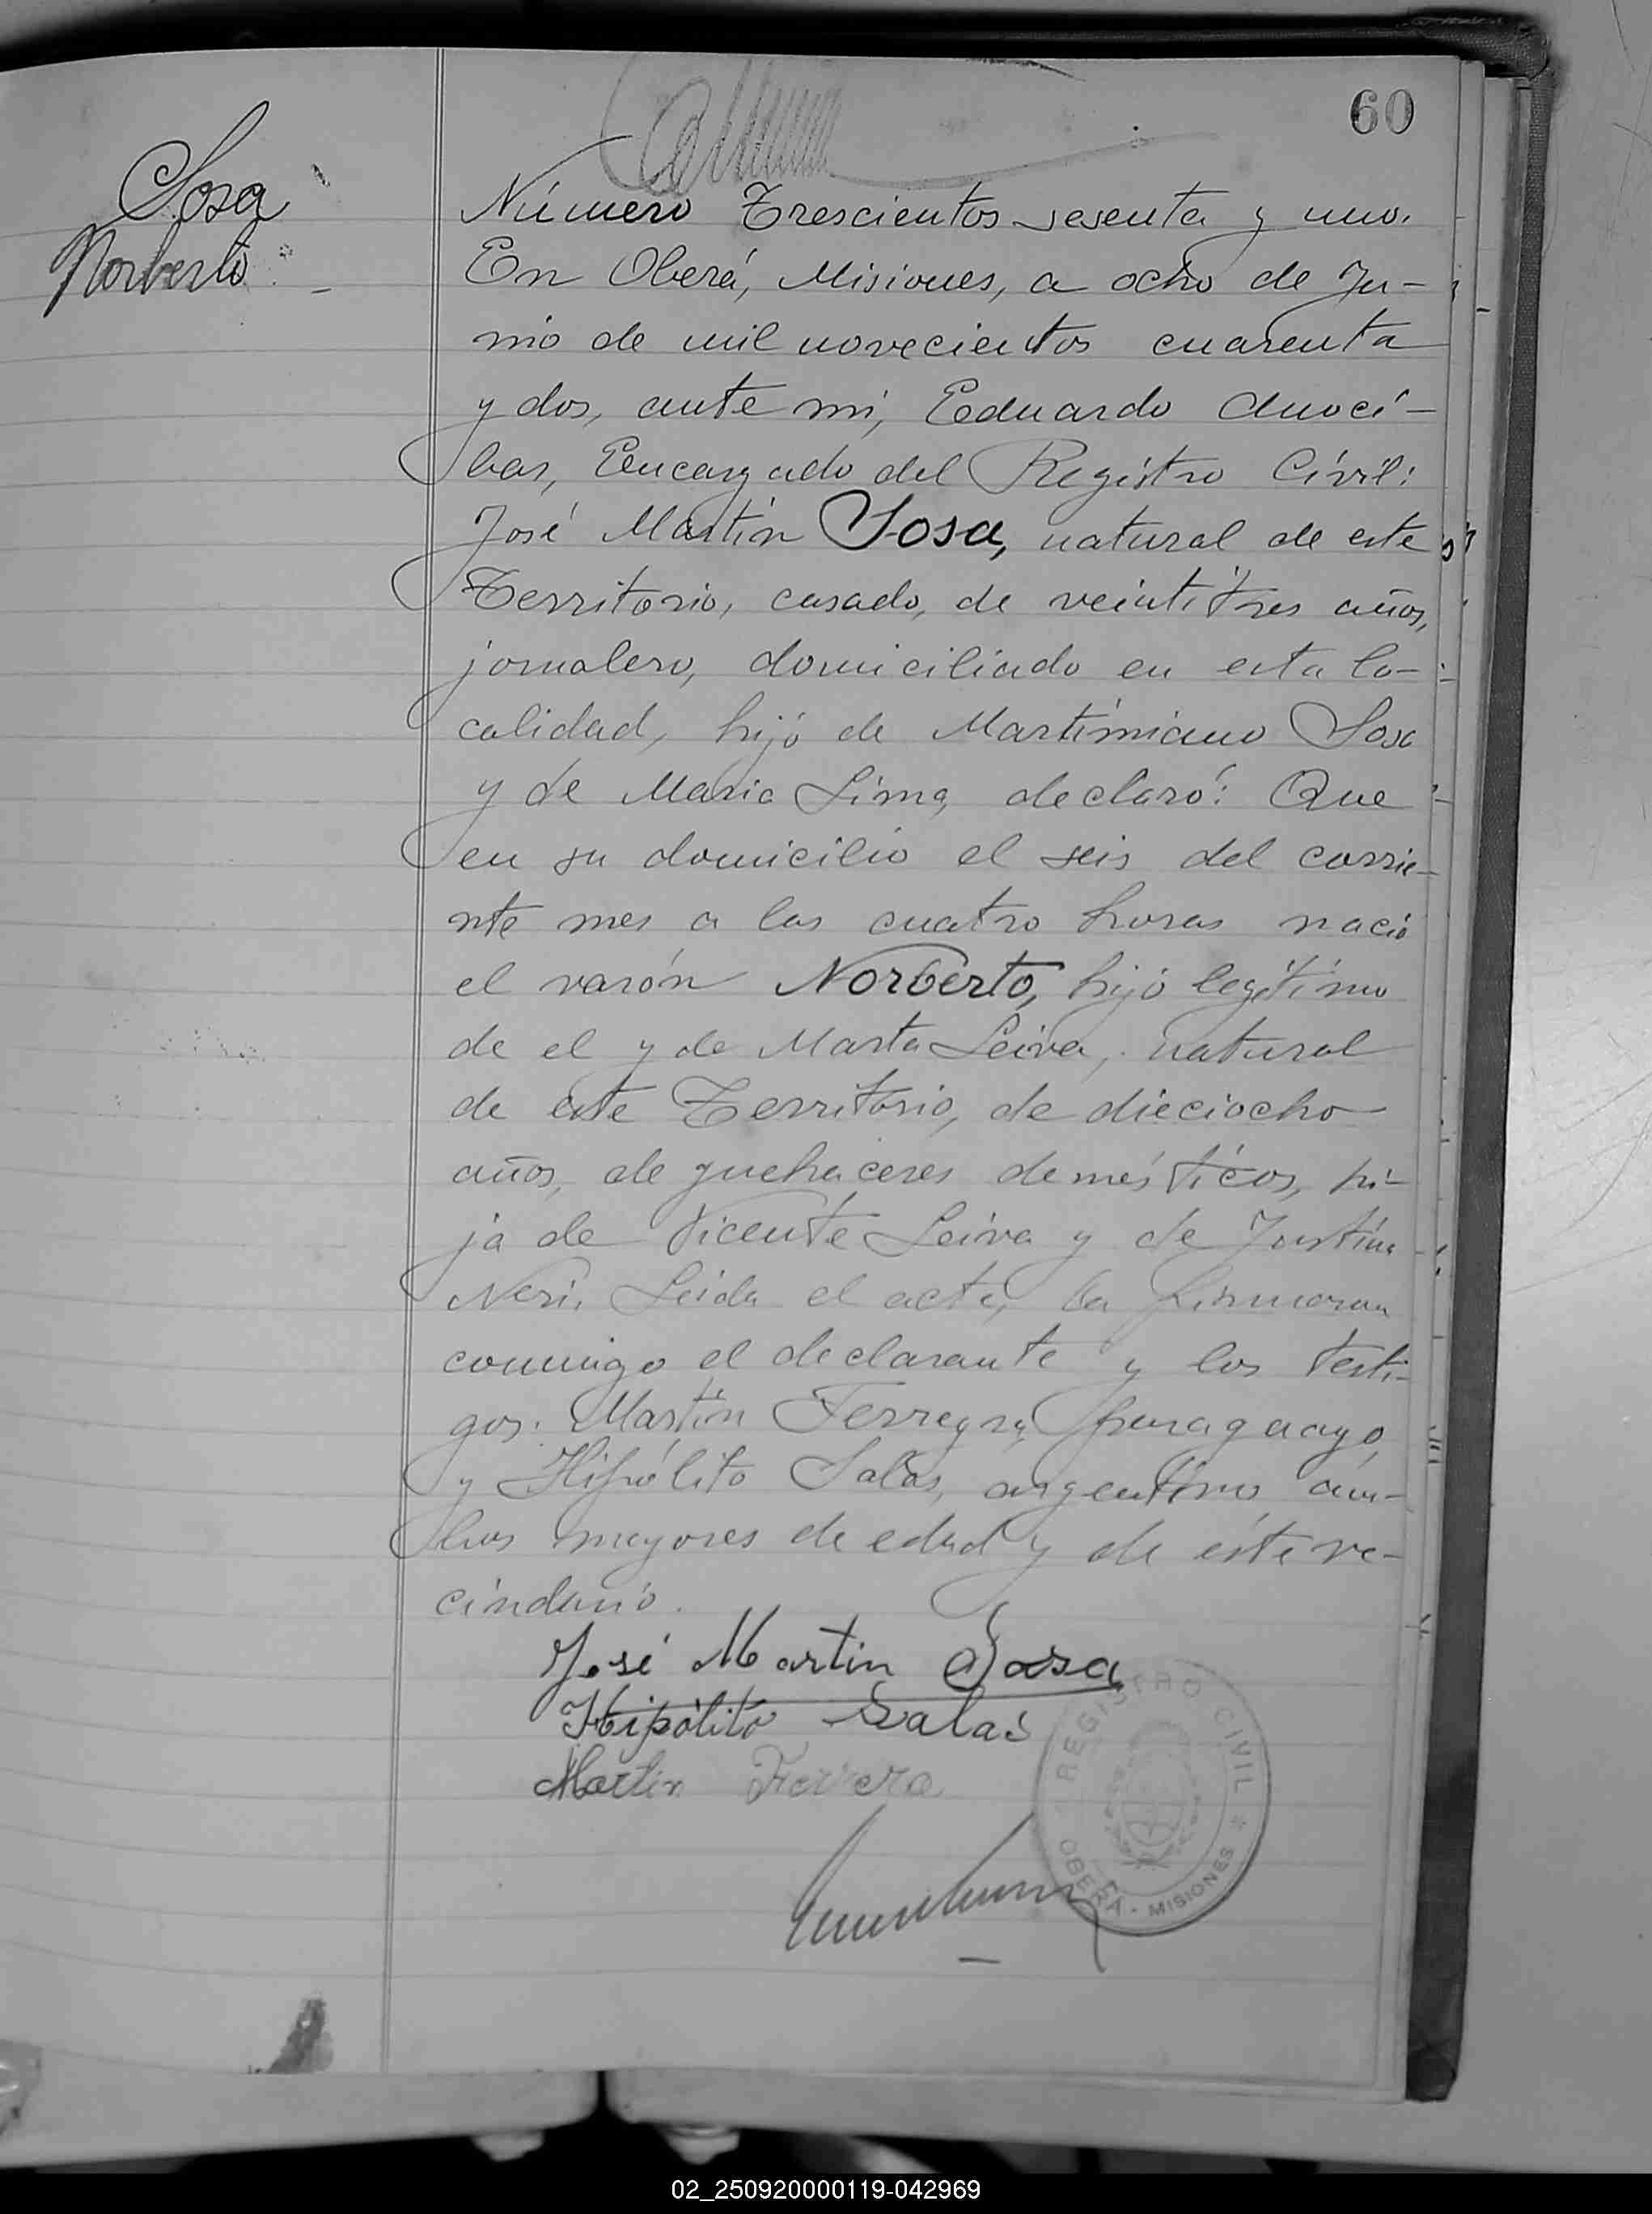 60
Sosa
Norberto
Número Trescientos sesenta y uno.
En Oberá, Misiones, a ocho de Ju-
nio de mil novecientos cuarenta
y dos, ante mi, Eduardo Anocí-
bar, Encargado del Registro Civil:
José Martín Sosa, natural de este
Territorio, casado, de veintitres años,
jornalero, domiciliado en esta lo-
calidad, hijo de Martimiano Sosa
y de Maria Lima, declaró: Que
en su domicilio el seis del corrie-
nte mes a las cuatro horas nació
el varón Norberto, hijo legítimo
de el y de Marta Leiva, natural
de este Territorio, de dieciocho
años, de quehaceres demésticos, hi-
ja de Vicente Leiva y de Justina
Neri. Leida el acta, la firmaron
conmigo el declarante y los testi-
gos. Martín Ferreyra, paraguayo
y Hipólito Salas, argentino am-
bos mayores de edad y de éste ve-
cindario.
José Martin Sosa
Hipólito Salas
Martin Ferrera
REGISTRO CIVIL
OBERÁ - MISIONES
02_250920000119-042969